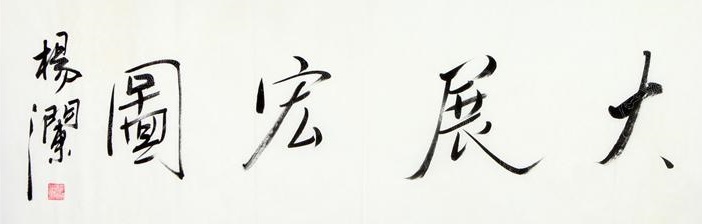 大展宏圖
楊瀾